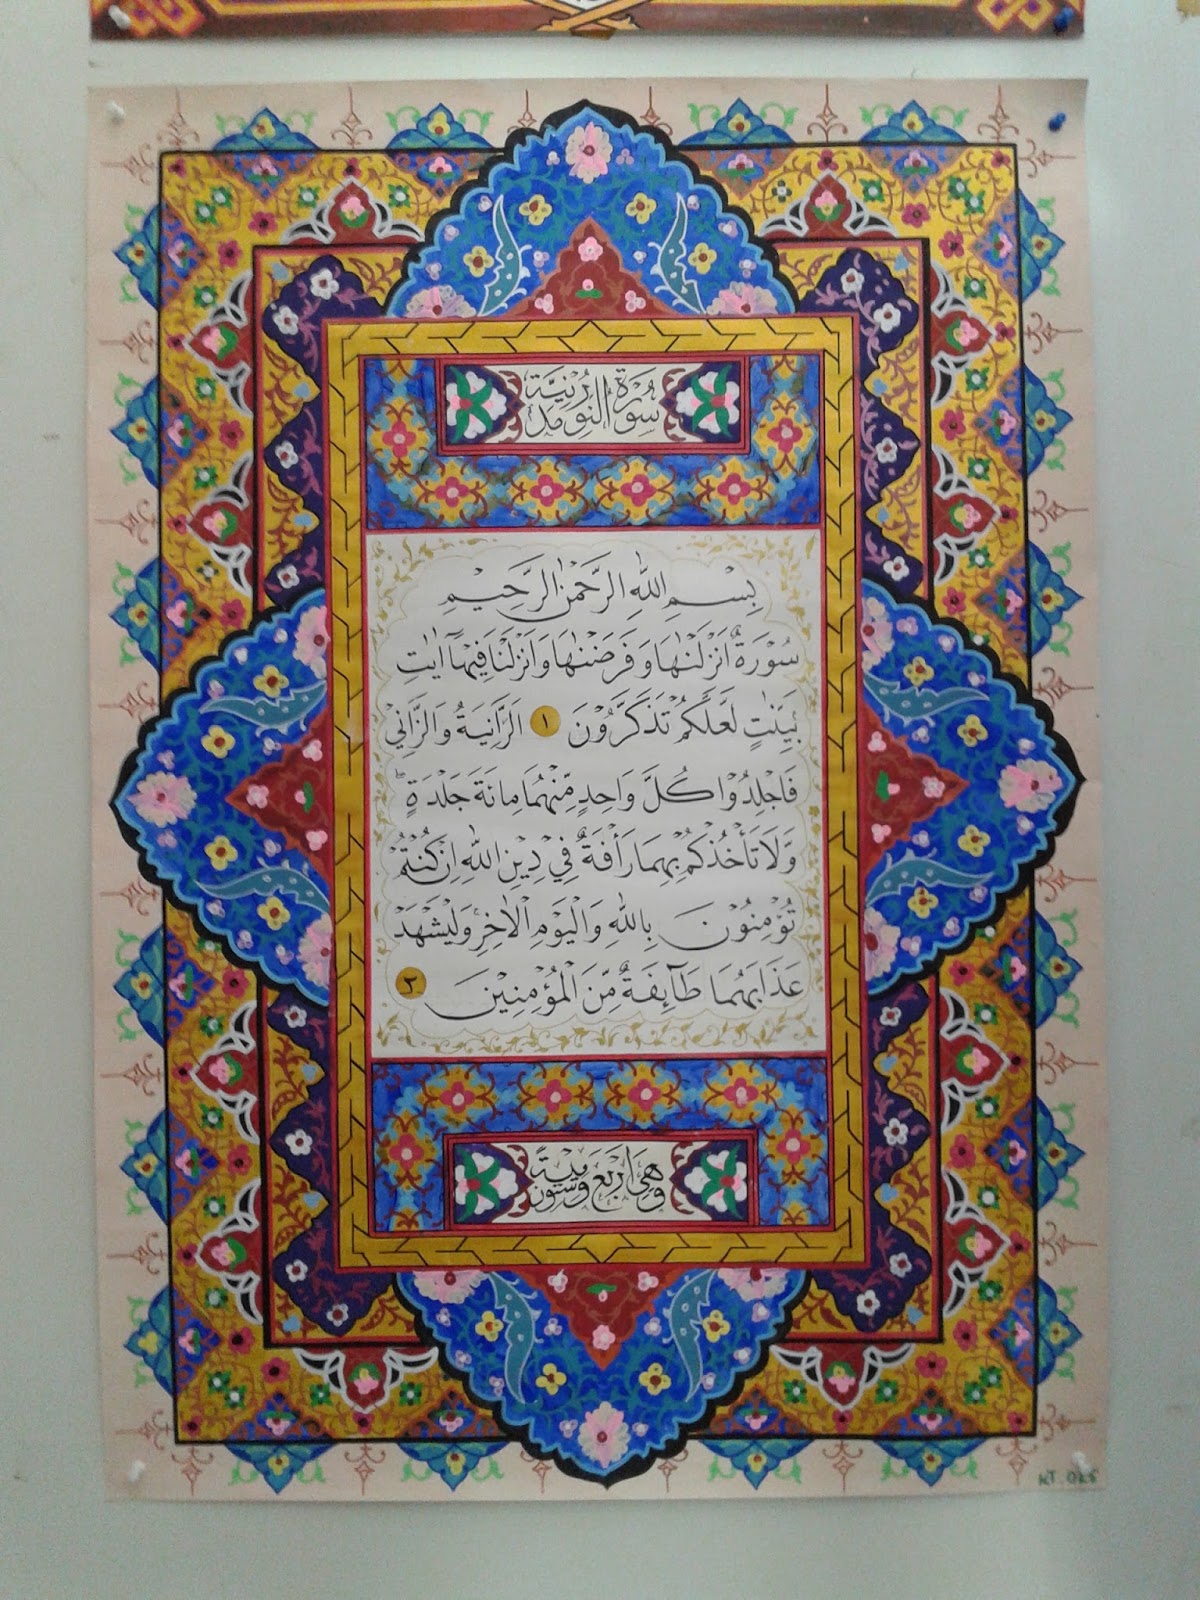 سُوْرَةُ النُّوْرِ مَدَنِيَّةٌ
بِسْمِ اللّٰهِ الرَّحْمٰنِ الرَّحِيْمِ
سُوْرَةٌ اَنْزَلْنٰهَا وَفَرَضْنٰهَا وَاَنْزَلْنَا فِيْهَآ اٰيٰتٍ
بَيِّنٰتٍ لَّعَلَّكُمْ تَذَكَّرُوْنَ ١ اَلزَّانِيَةُ وَالزَّانِيْ
فَاجْلِدُوْا كُلَّ وَاحِدٍ مِّنْهُمَا مِائَةَ جَلْدَةٍ ۖ
وَّلَا تَأْخُذْكُمْ بِهِمَا رَأْفَةٌ فِيْ دِيْنِ اللّٰهِ اِنْ كُنْتُمْ
تُؤْمِنُوْنَ بِاللّٰهِ وَالْيَوْمِ الْاٰخِرِۚ وَلْيَشْهَدْ
عَذَابَهُمَا طَاۤئِفَةٌ مِّنَ الْمُؤْمِنِيْنَ ٢
وَهِيَ اَرْبَعٌ وَسِتُّوْنَ اٰيَةً
KT. 025